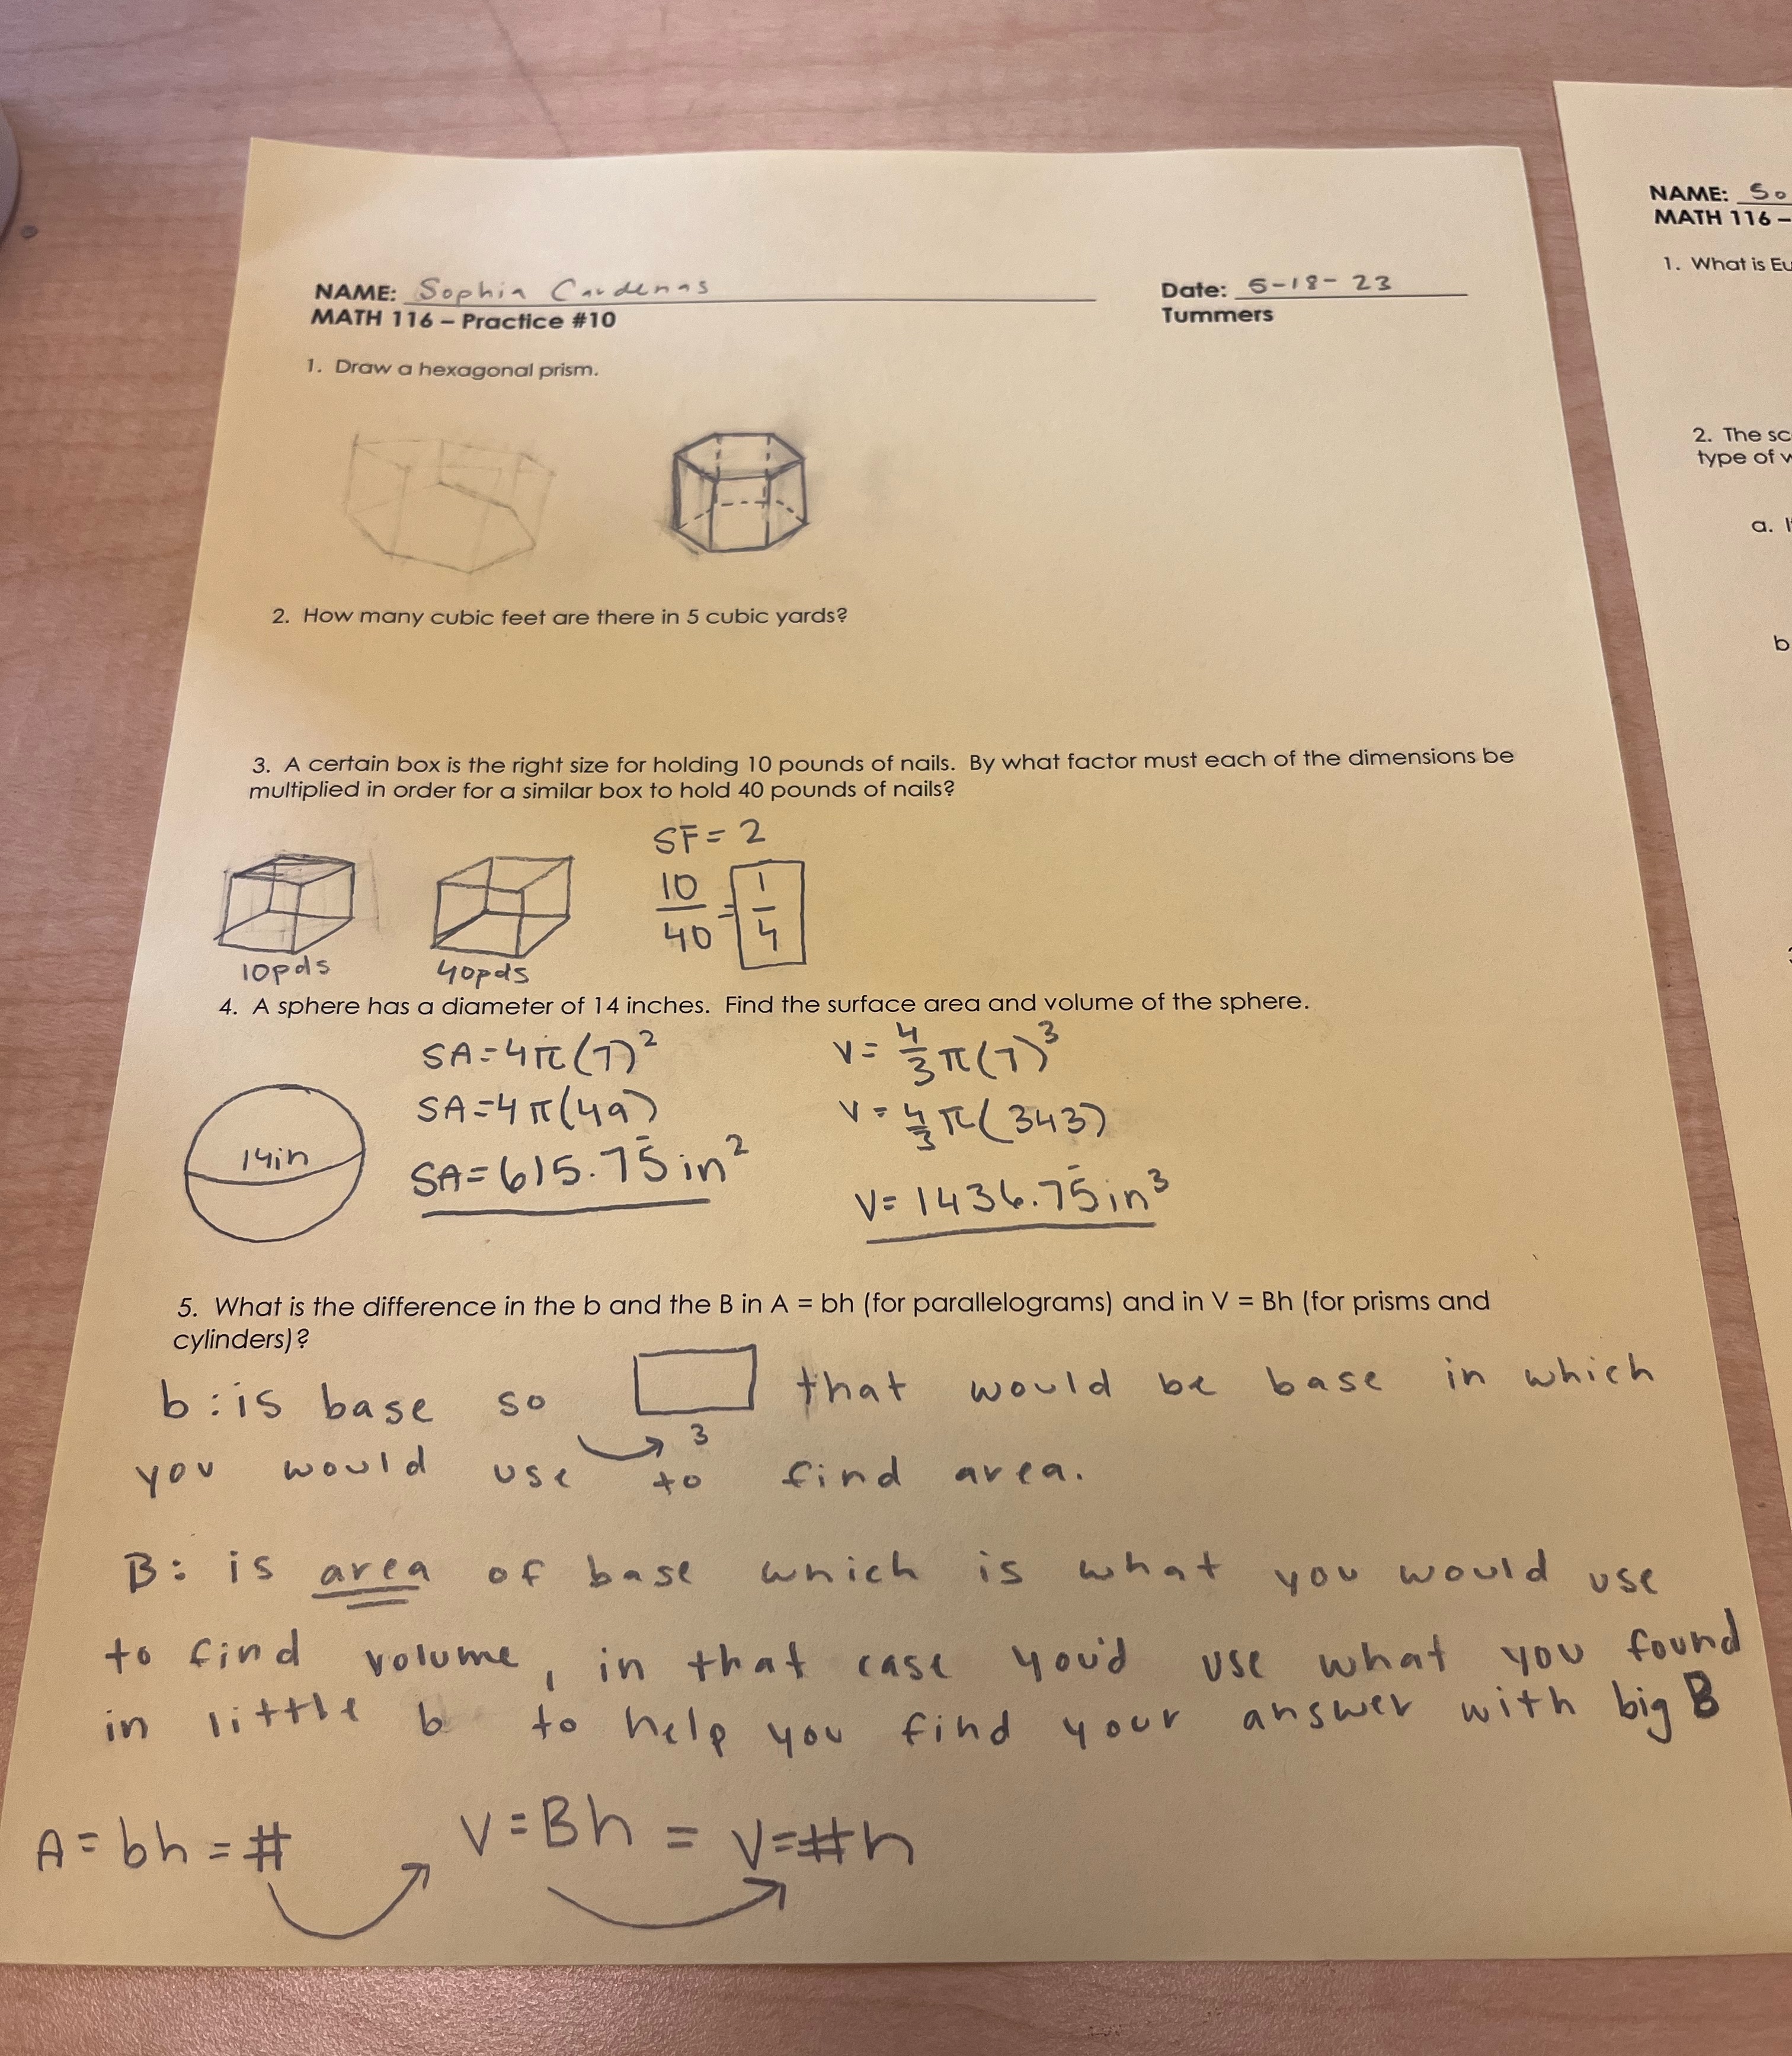 NAME: Sophia Cardenas
Date: 5-18-23
MATH 116 – Practice #10
Tummers
1. Draw a hexagonal prism.
2. How many cubic feet are there in 5 cubic yards?
3. A certain box is the right size for holding 10 pounds of nails. By what factor must each of the dimensions be
multiplied in order for a similar box to hold 40 pounds of nails?
SF = 2
10/40 = 1/4
10pds
40pds
4. A sphere has a diameter of 14 inches. Find the surface area and volume of the sphere.
SA=4π(7)²
V= 4/3 π(7)³
SA=4π(49)
V= 4/3 π(343)
14in
SA=615.75in²
V= 1436.75in³
5. What is the difference in the b and the B in A = bh (for parallelograms) and in V = Bh (for prisms and
cylinders)?
b: is base so that would be base in which
3
you would use to find area.
B: is area of base which is what you would use
to find volume, in that case you'd use what you found
in little b to help you find your answer with big B
A=bh=#
V=Bh = V=#h
NAME: So
MATH 116 –
1. What is Eu
2. The sc
type of w
a. I
b